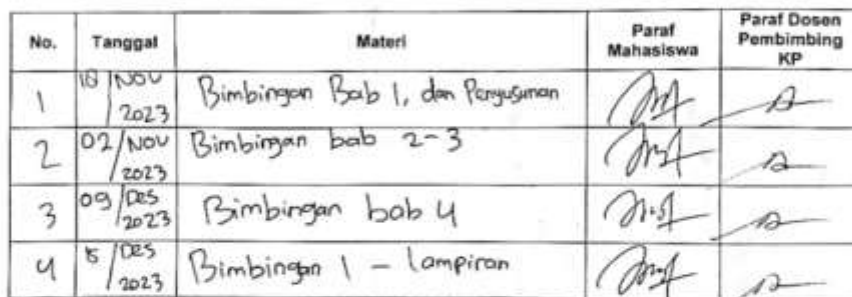 No. Tanggal Materi Paraf Mahasiswa Paraf Dosen Pembimbing KP
1 18/Nov 2023 Bimbingan Bab 1, dan Penyusunan
2 02/Nov 2023 Bimbingan bab 2-3
3 09/Des 2023 Bimbingan bab 4
4 /Des 2023 Bimbingan 1 - lampiran